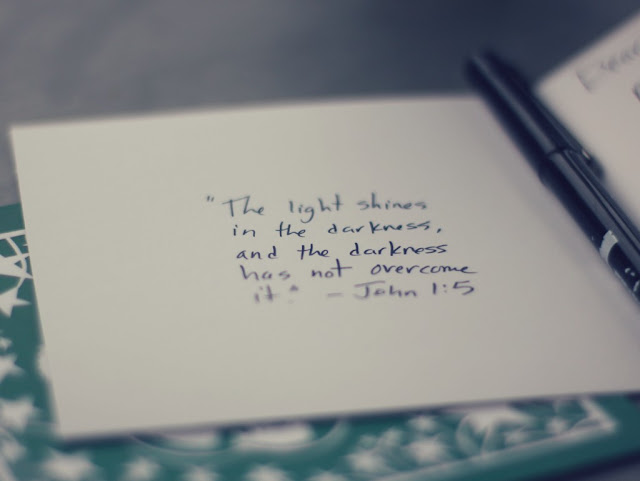 "The light shines
in the darkness,
and the darkness
has not overcome
it." - John 1:5